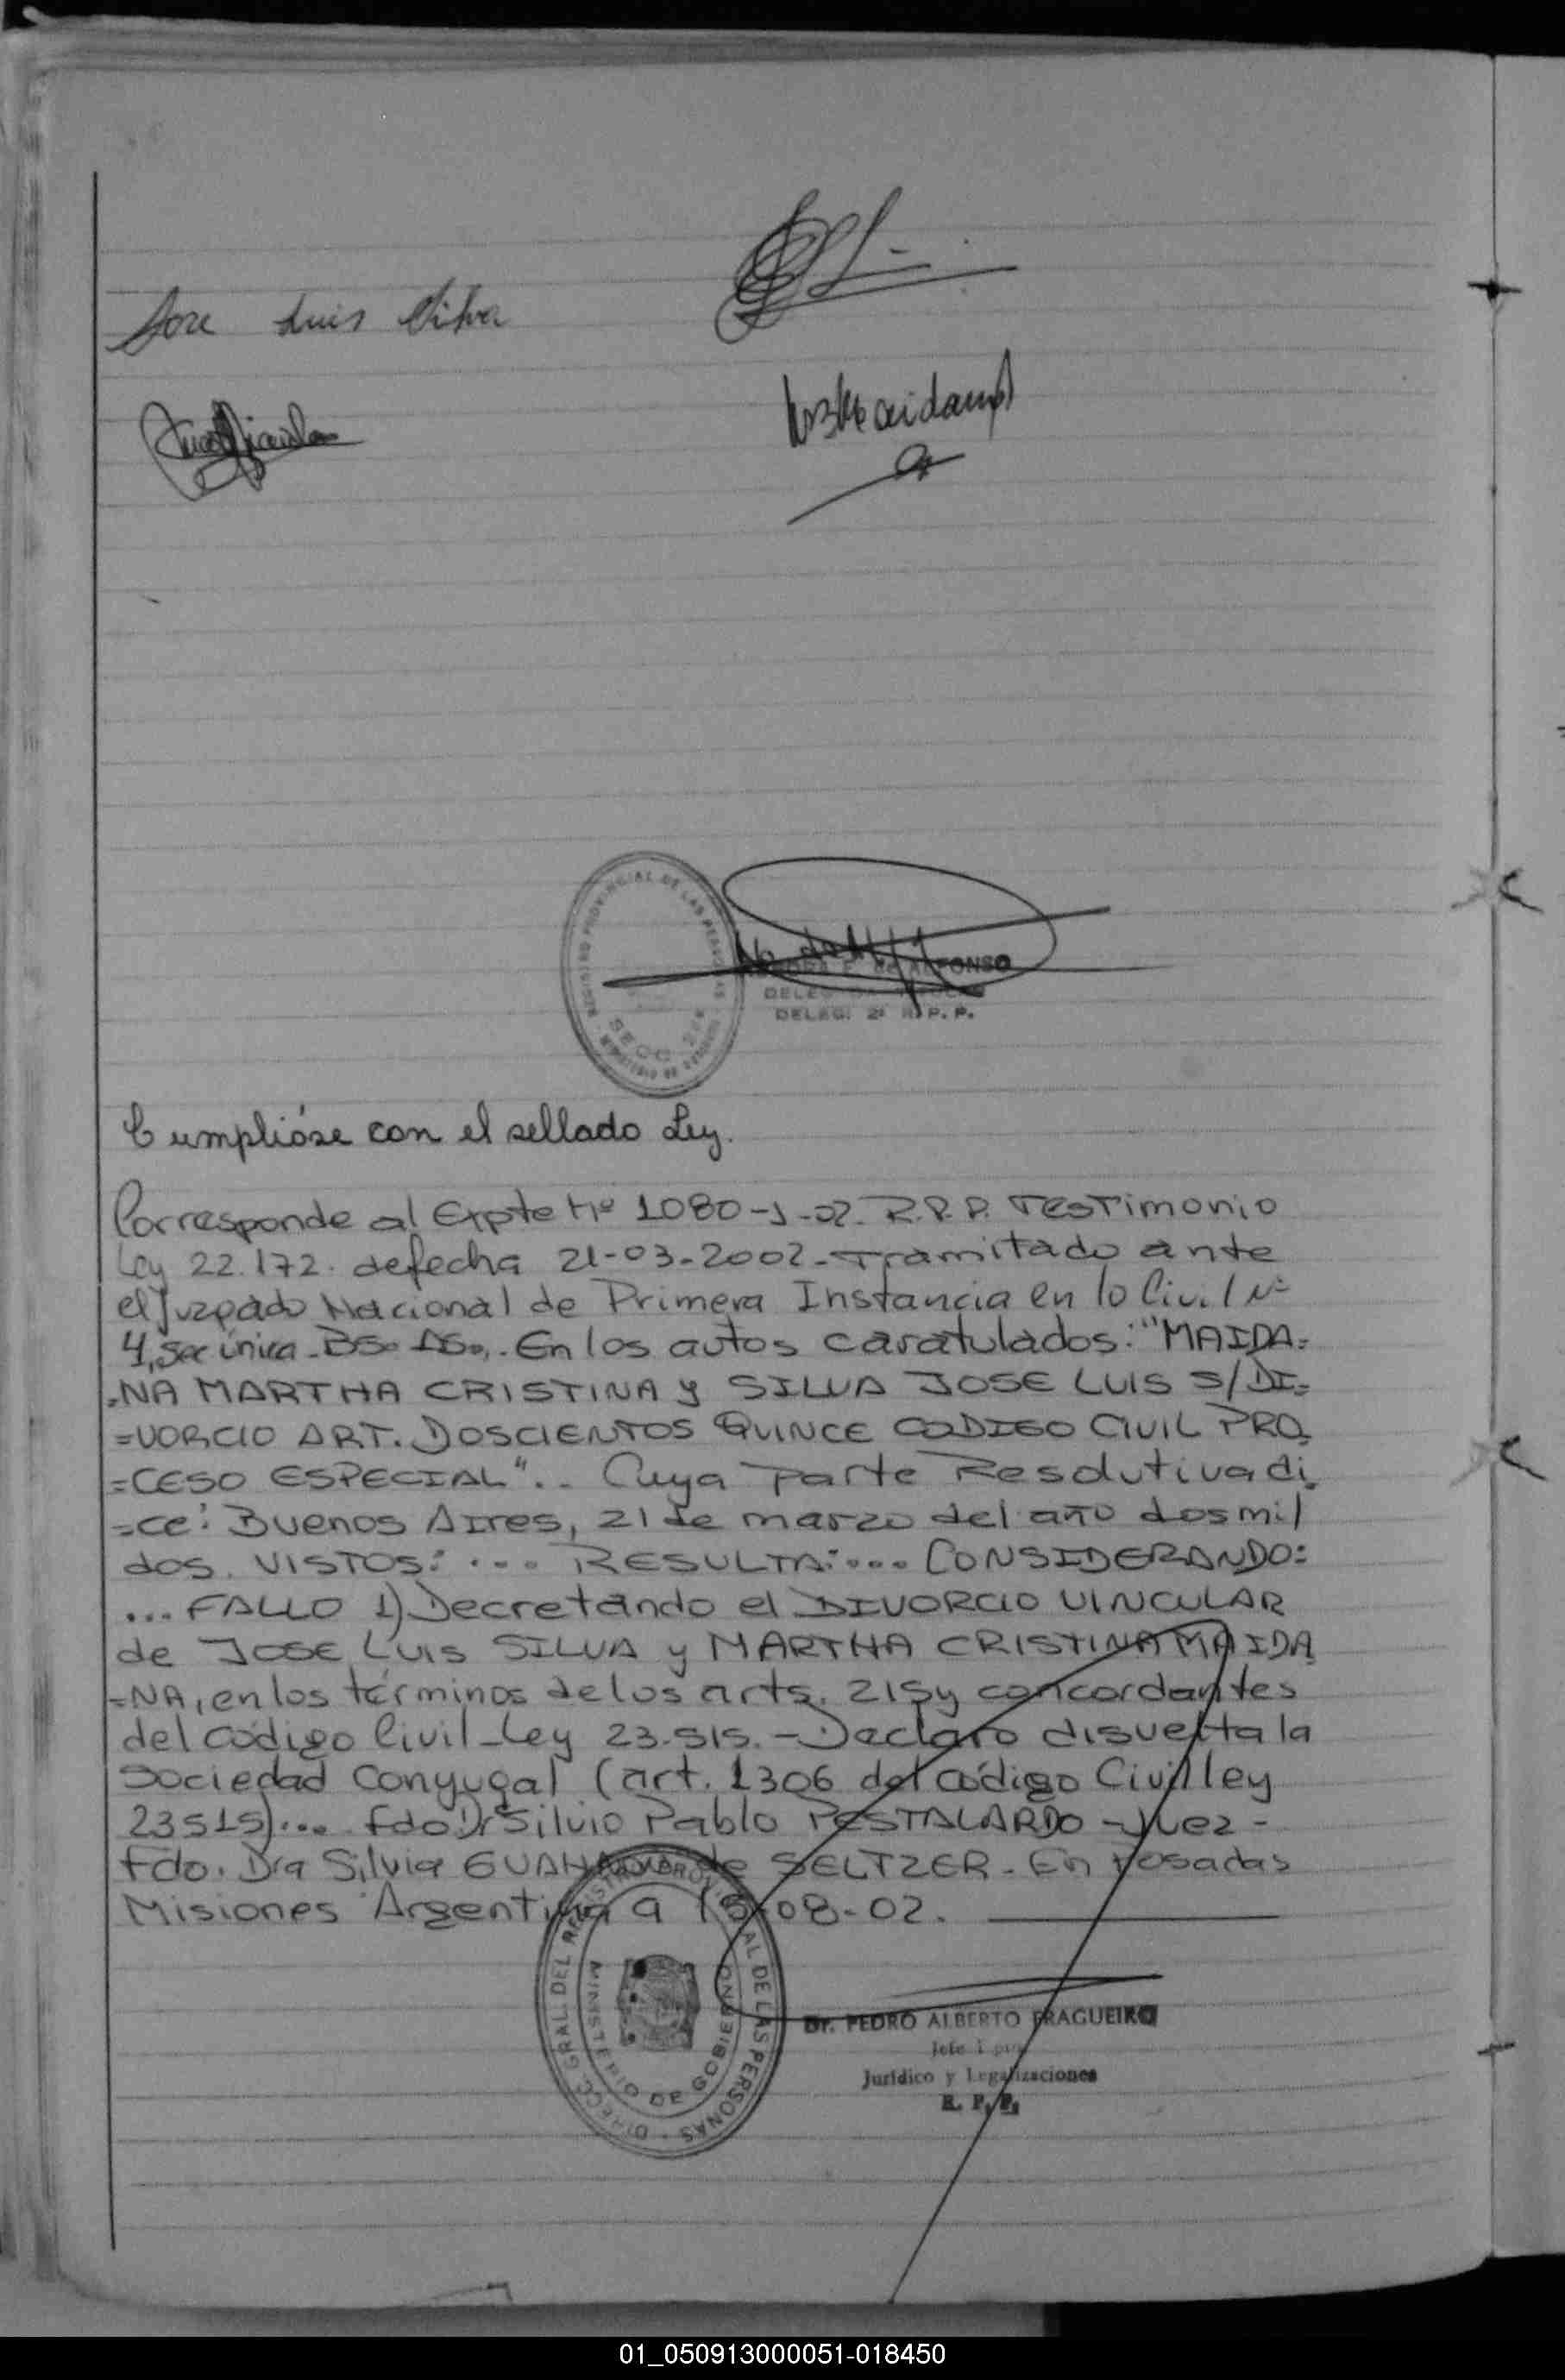 Jose Luis Silva
REGISTRO PROVINCIAL DE LAS PERSONAS
SECC. 2da
MINISTERIO DE GOBIERNO
DE ALFONSO
DELEG. 2ª R.P.P.
Cumplióse con el sellado Ley.
Corresponde al Expte Nº 1080-J-02. R.P.P. Testimonio
Ley 22.172. de fecha 21-03-2002. Tramitado ante
el Juzgado Nacional de Primera Instancia en lo Civil Nº
4, sec única. Bs. As., . En los autos caratulados: "MAIDA=
=NA MARTHA CRISTINA y SILVA JOSE LUIS S/ DI=
=VORCIO ART. DOSCIENTOS QUINCE CODIGO CIVIL PRO=
=CESO ESPECIAL".. Cuya parte Resolutiva di=
=ce: Buenos Aires, 21 de marzo del año dos mil
dos. VISTOS: ... RESULTA:... CONSIDERANDO:
... FALLO 1) Decretando el DIVORCIO VINCULAR
de JOSE LUIS SILVA y MARTHA CRISTINA MAIDA
=NA, en los términos de los arts. 215 y concordantes
del código Civil - Ley 23.515. - Declaro disuelta la
Sociedad Conyugal (art. 1306 del código Civil ley
23515)... Fdo Dr Silvio Pablo PESTALARDO - Juez -
Fdo. Dra Silvia de SELTZER - En Posadas
Misiones Argentina a 15-08-02.
DIRECC. GRAL. DEL REGISTRO PROVINCIAL DE LAS PERSONAS
MINISTERIO DE GOBIERNO
Dr. PEDRO ALBERTO FRAGUEIRO
Jefe
Jurídico y Legalizaciones
R. P. P.
01_050913000051-018450